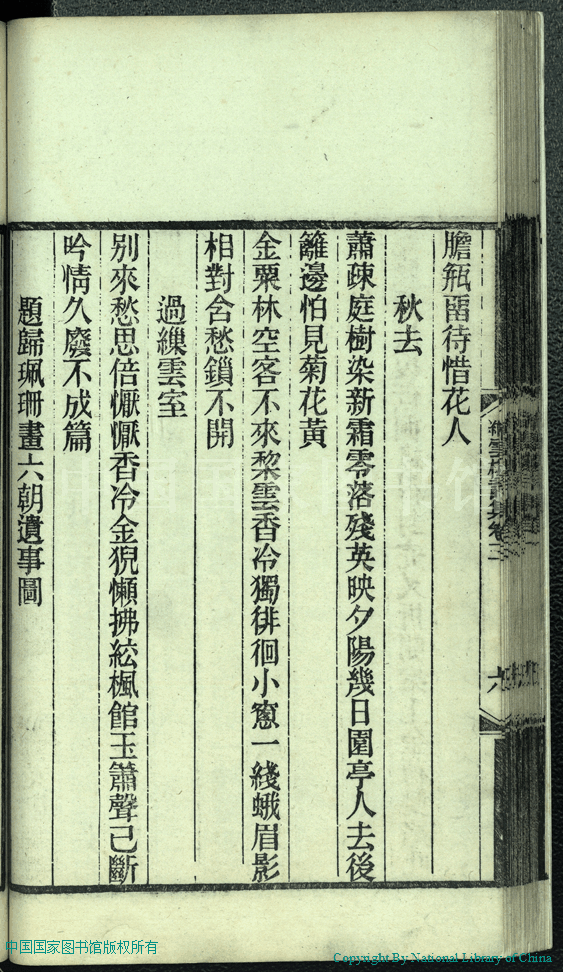 膽瓶畱待惜花人
秋去
蕭疎庭樹染新霜零落殘英映夕陽幾日園亭人去後
籬邊怕見菊花黃
金粟林空客不來棃雲香冷獨徘徊小窻一綫蛾眉影
相對含愁鎖不開
過繅雲室
别來愁思倍懨懨香冷金猊懶拂絃楓館玉簫聲已斷
吟情久廢不成篇
題歸珮珊畫六朝遺事圖
六
中国国家图书馆版权所有
Copyright By National Library of China